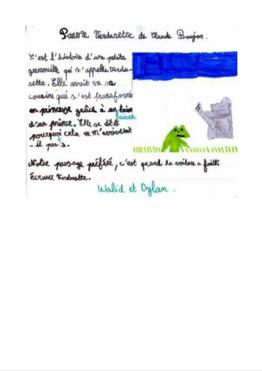 Pauvre Verdurette de Claude Boujon.
C'est l'histoire d'une petite
grenouille qui s'appelle Verdu-
rette. Elle avait vu sa
cousine qui s'est transformée
en princesse grâce à un
baiser
d'un prince. Elle se dit
pourquoi cela ne m'arriverait
- il pas.
Notre passage préféré, c'est quand la voiture a failli
écraser Verdurette.
Walid et Dylan.